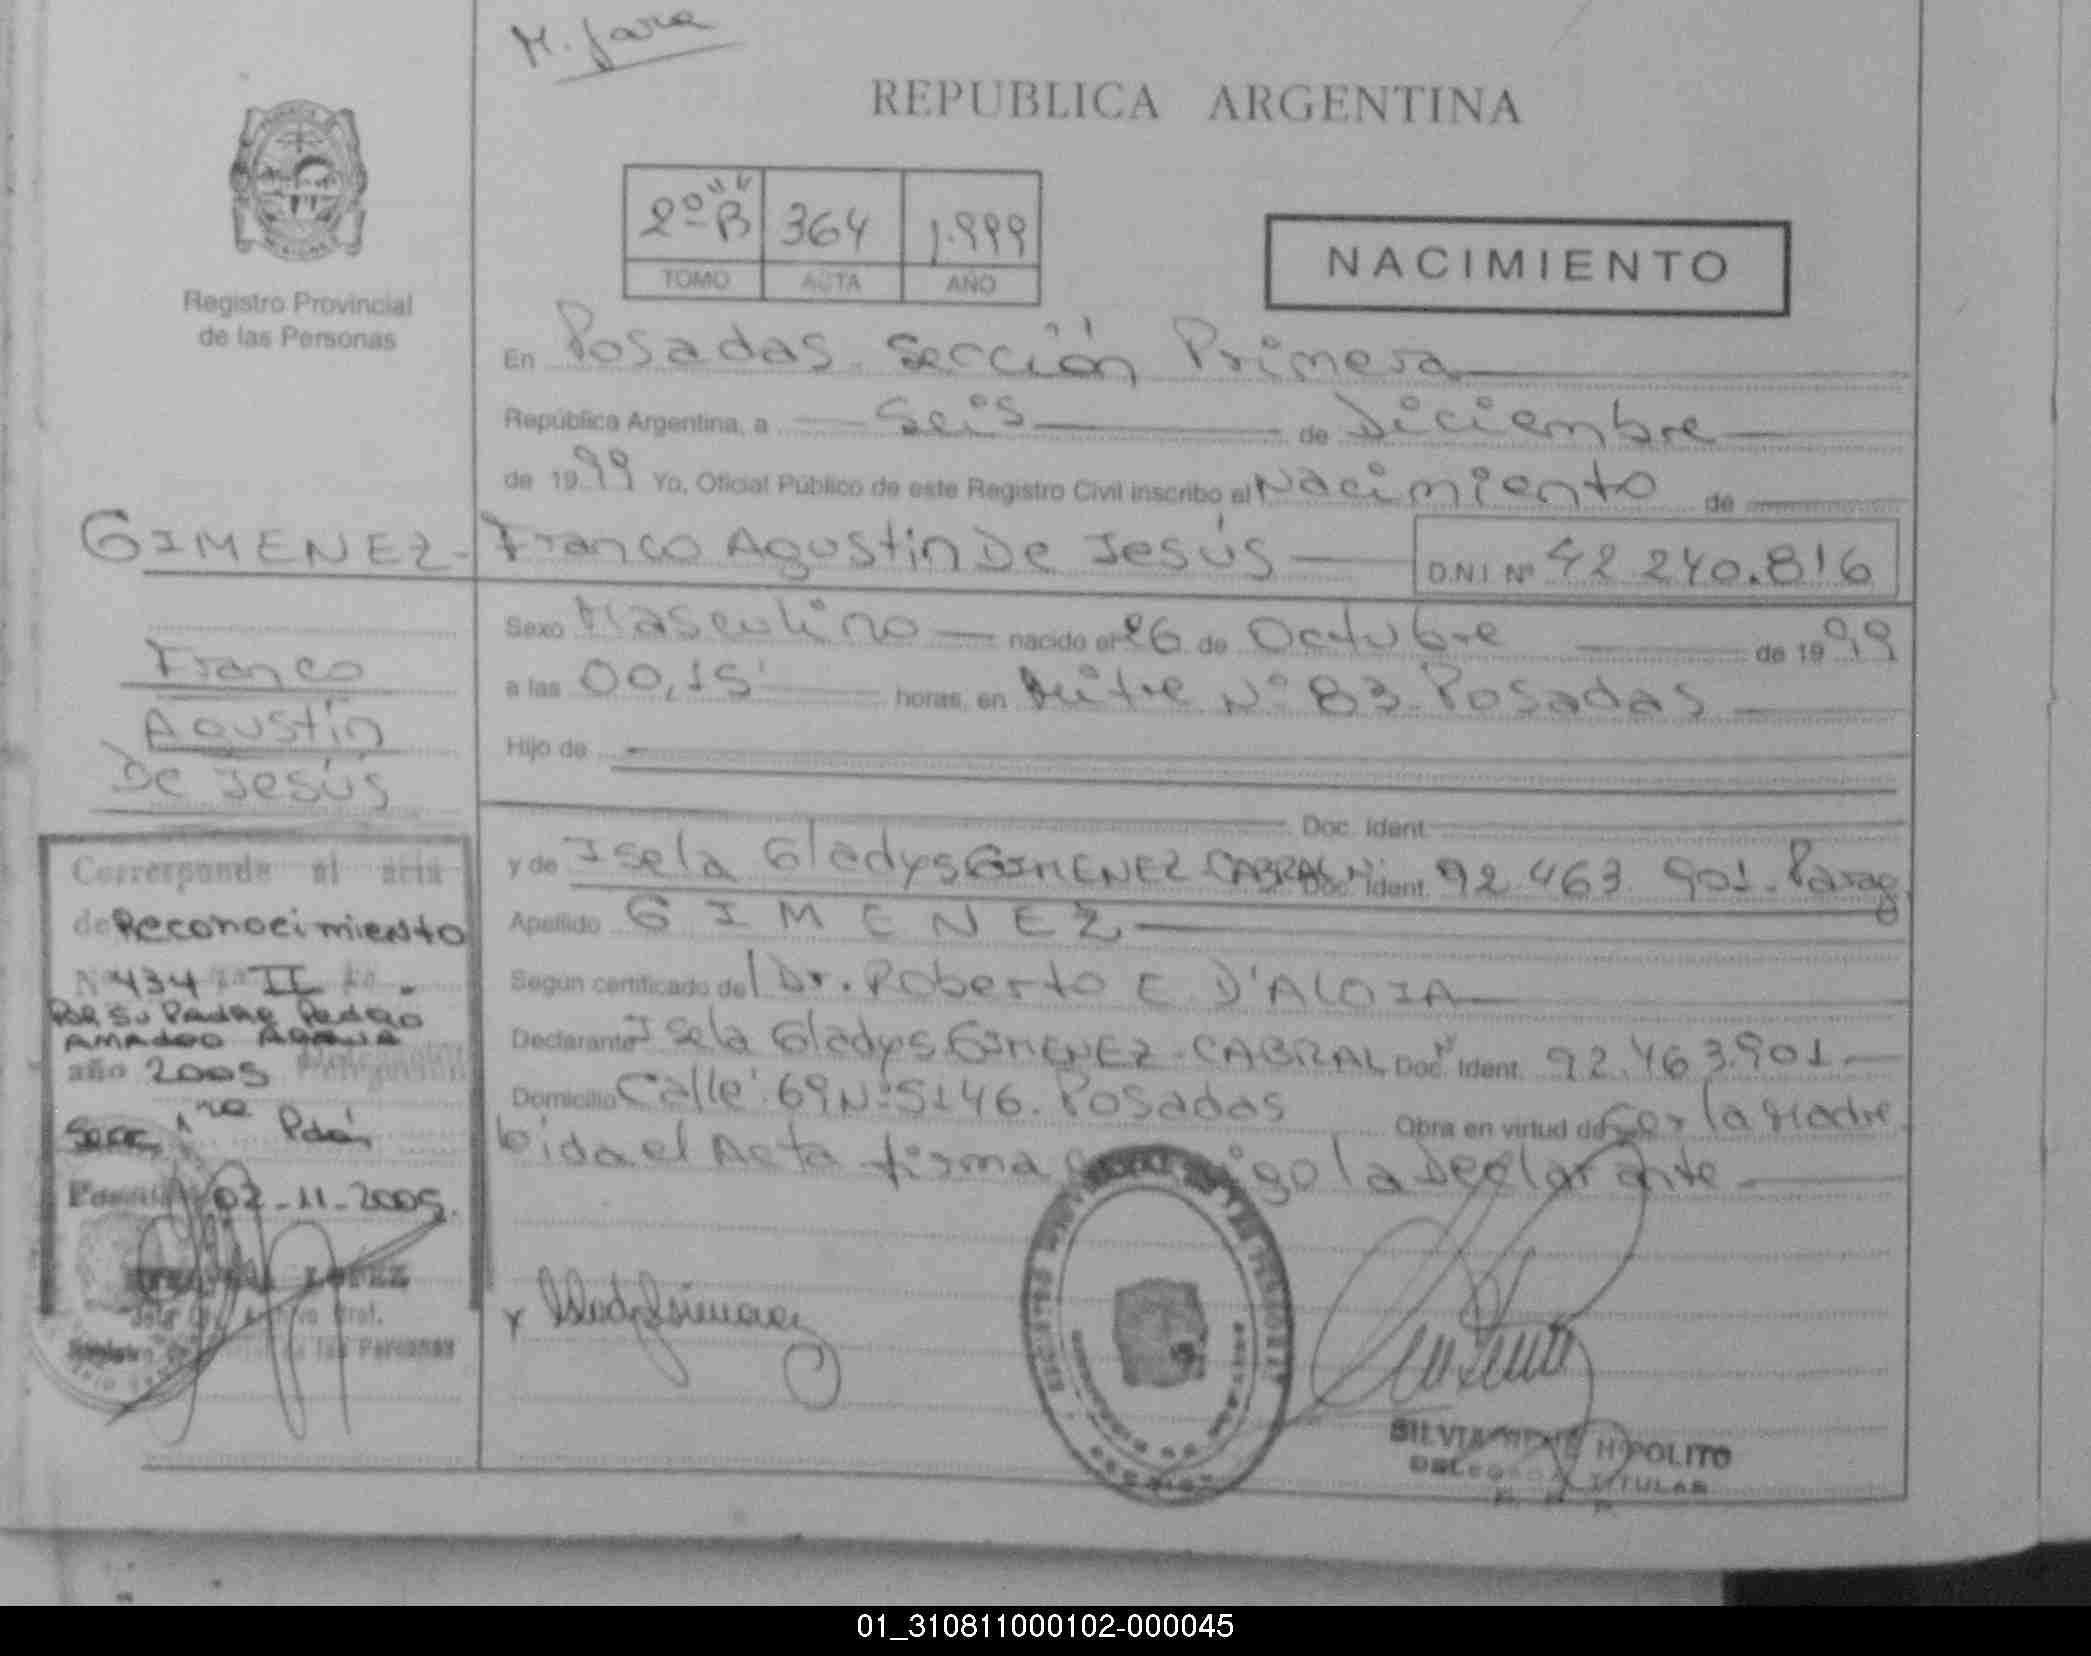 M. Jara
REPUBLICA ARGENTINA
2º "B" 364 1.999
TOMO ACTA AÑO
NACIMIENTO
Registro Provincial
de las Personas
En Posadas. Sección Primera
República Argentina, a Seis de Diciembre
de 1999 Yo, Oficial Público de este Registro Civil inscribo el Nacimiento de
GIMENEZ - Franco Agustin De Jesús D.N.I. Nº 42 240.816
Sexo Masculino nacido el 26 de Octubre de 1999
a las 00,15' horas, en Mitre Nº 83. Posadas
Hijo de
Doc. Ident.
y de Isela Gladys GIMENEZ CABRAL Doc. Ident. 92.463.901. Parag
Apellido GIMENEZ
Según certificado del Dr. Roberto E D'ALOIA
Declarante Isela Gladys GIMENEZ-CABRAL Doc. Ident. 92.463.901
Domicilio Calle 69 Nº 5146. Posadas Obra en virtud de Ser la Madre
Leida el Acta firma la Declarante
Franco
Agustín
De Jesús
Corresponde al acta
de Reconocimiento
Nº 434 Tº II
POR SU PADRE PEDRO
AMADEO
año 2005
Secc. 1ra Pdas
Posadas 02-11-2005.
LOPEZ
de las Personas
SILVIA HIPOLITO
DELEGADA TITULAR
01_310811000102-000045